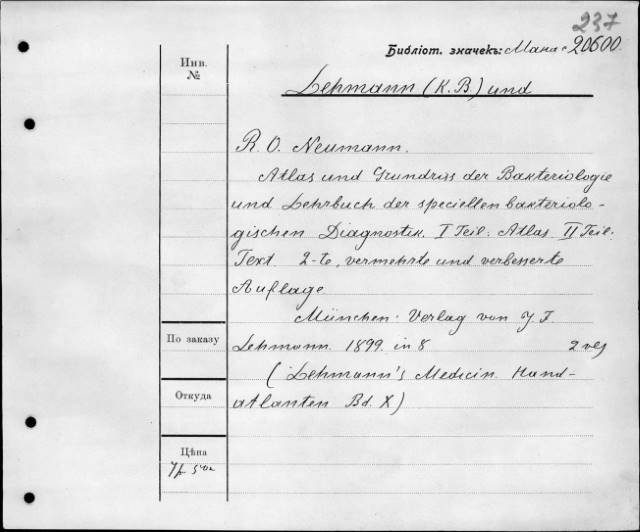 237
Библіот. значекъ: Мака 20600.
Инв.
№
Lehmann (K.B.) und
R. O. Neumann.
Atlas und Grundriss der Bakteriologie
und Lehrbuch der speciellen bakteriolo-
gischen Diagnostik. I Teil: Atlas II Teil:
Text. 2-te, vermehrte und verbesserte
Auflage
München. Verlag von J. F.
По заказу
Lehmann. 1899. in 8
(Lehmann's Medicin. Hand-
Откуда
atlanten Bd. X)
Цѣна